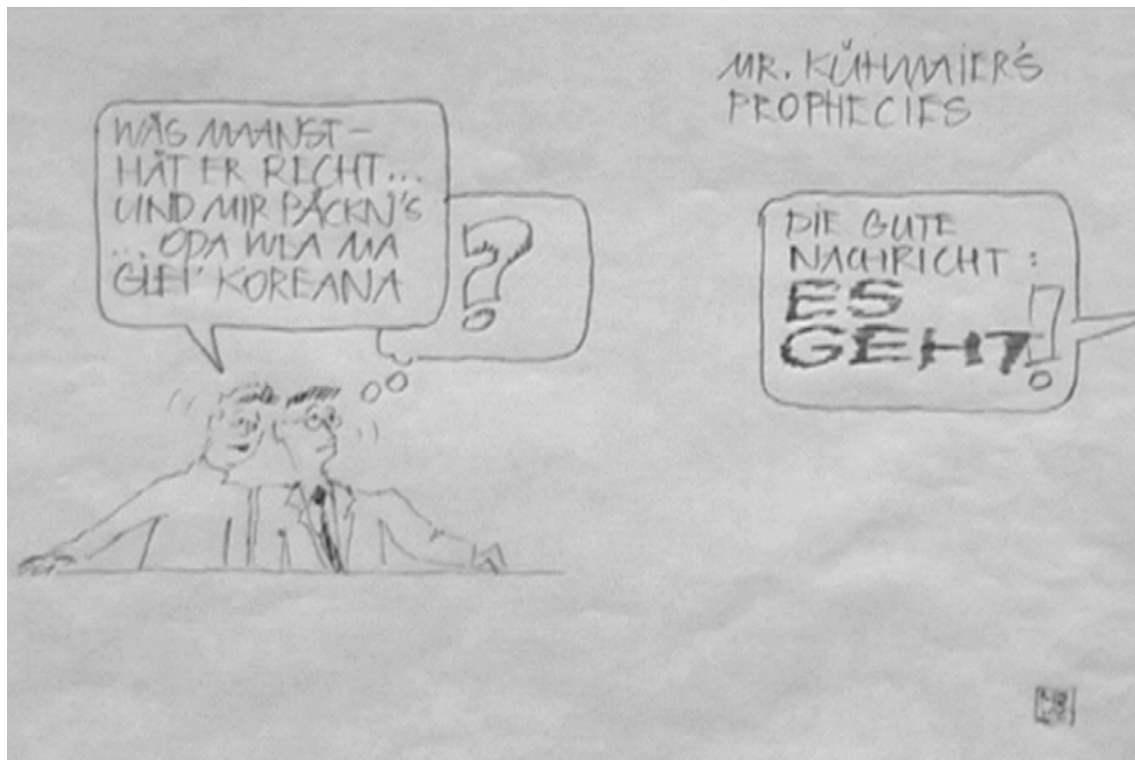 MR. KÜHMAIER'S
PROPHECIES
WÅS MAANST –
HÅT ER RECHT...
UND MIR PÅCKN'S
... ODA WIA MA
GLEI' KOREANA
?
DIE GUTE
NACHRICHT :
ES
GEHT!